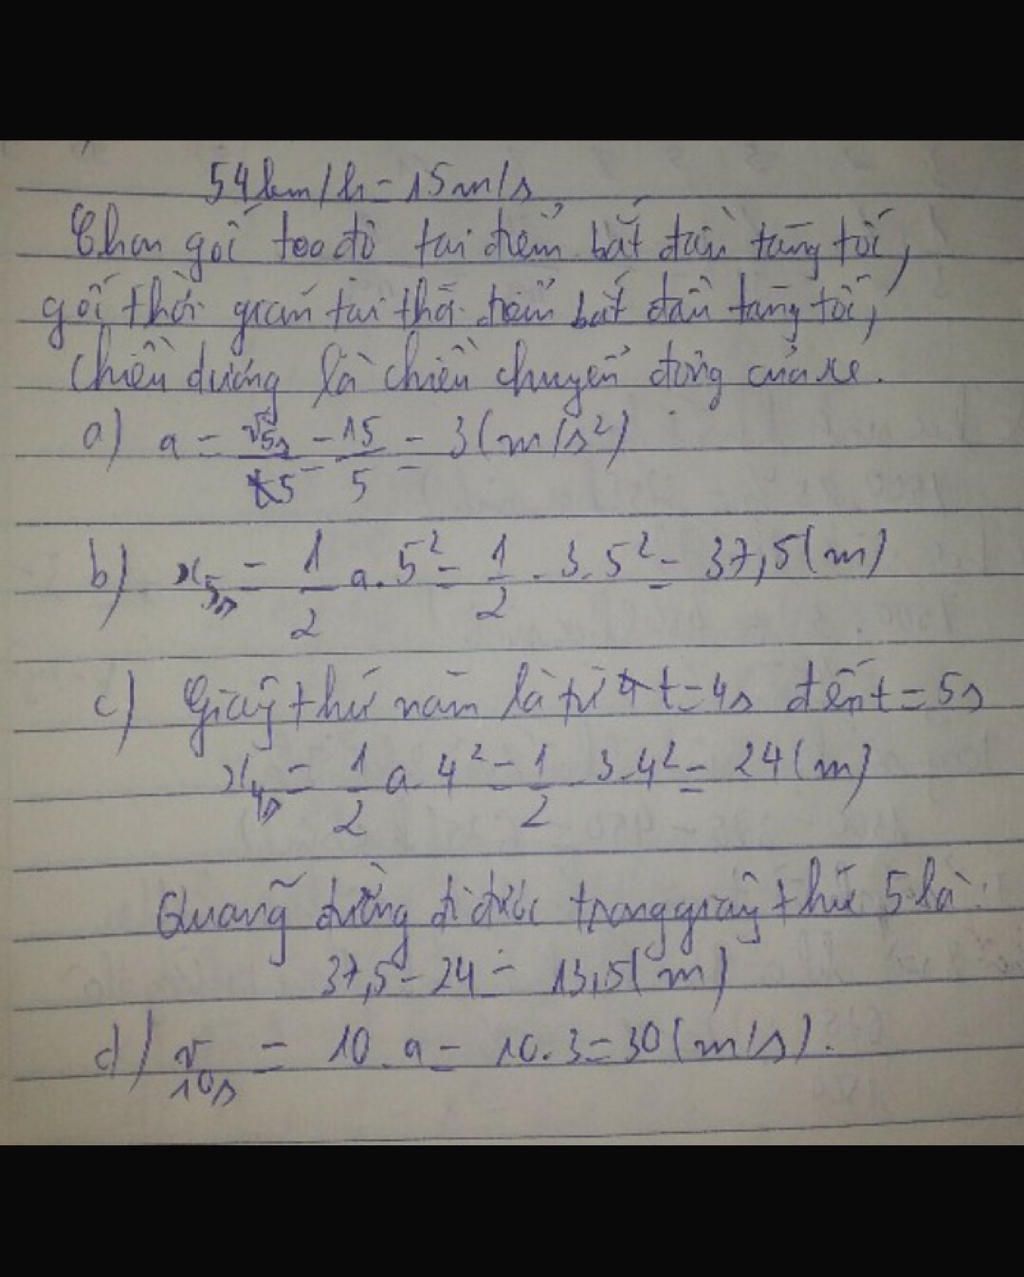 54km/h = 15m/s
Chọn gốc toạ độ tại điểm bắt đầu tăng tốc,
gốc thời gian tại thời điểm bắt đầu tăng tốc,
chiều dương là chiều chuyển động của xe.
a) a = v5s/t5 = 15/5 = 3 (m/s²)
b) x5s = 1/2 a.5² = 1/2 . 3.5² = 37,5 (m)
c) Giây thứ năm là từ t=4s đến t=5s
x4s = 1/2 a.4² = 1/2 3.4² = 24 (m)
Quãng đường đi được trong giây thứ 5 là:
37,5 - 24 = 13,5 (m)
d) v10s = 10.a = 10.3 = 30 (m/s).